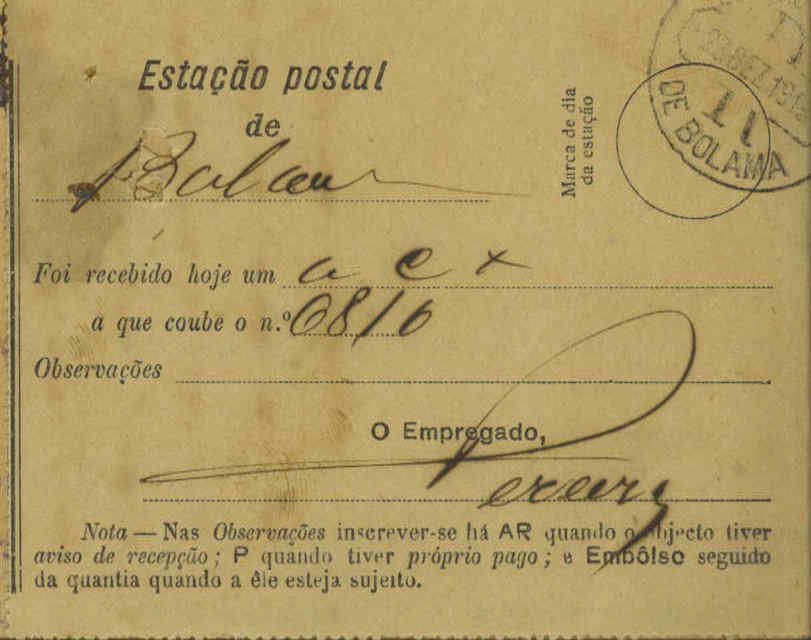 Estação postal
de
Bolama
Marca de dia
da estação
23 SET 19
DE BOLAMA
Foi recebido hoje um
a que coube o n.º 6816
Observações
O Empregado,
Pereira
Nota — Nas Observações inscrever-se há AR quando o objecto tiver
aviso de recepção; P quando tiver próprio pago; e Embôlso seguido
da quantia quando a êle esteja sujeito.